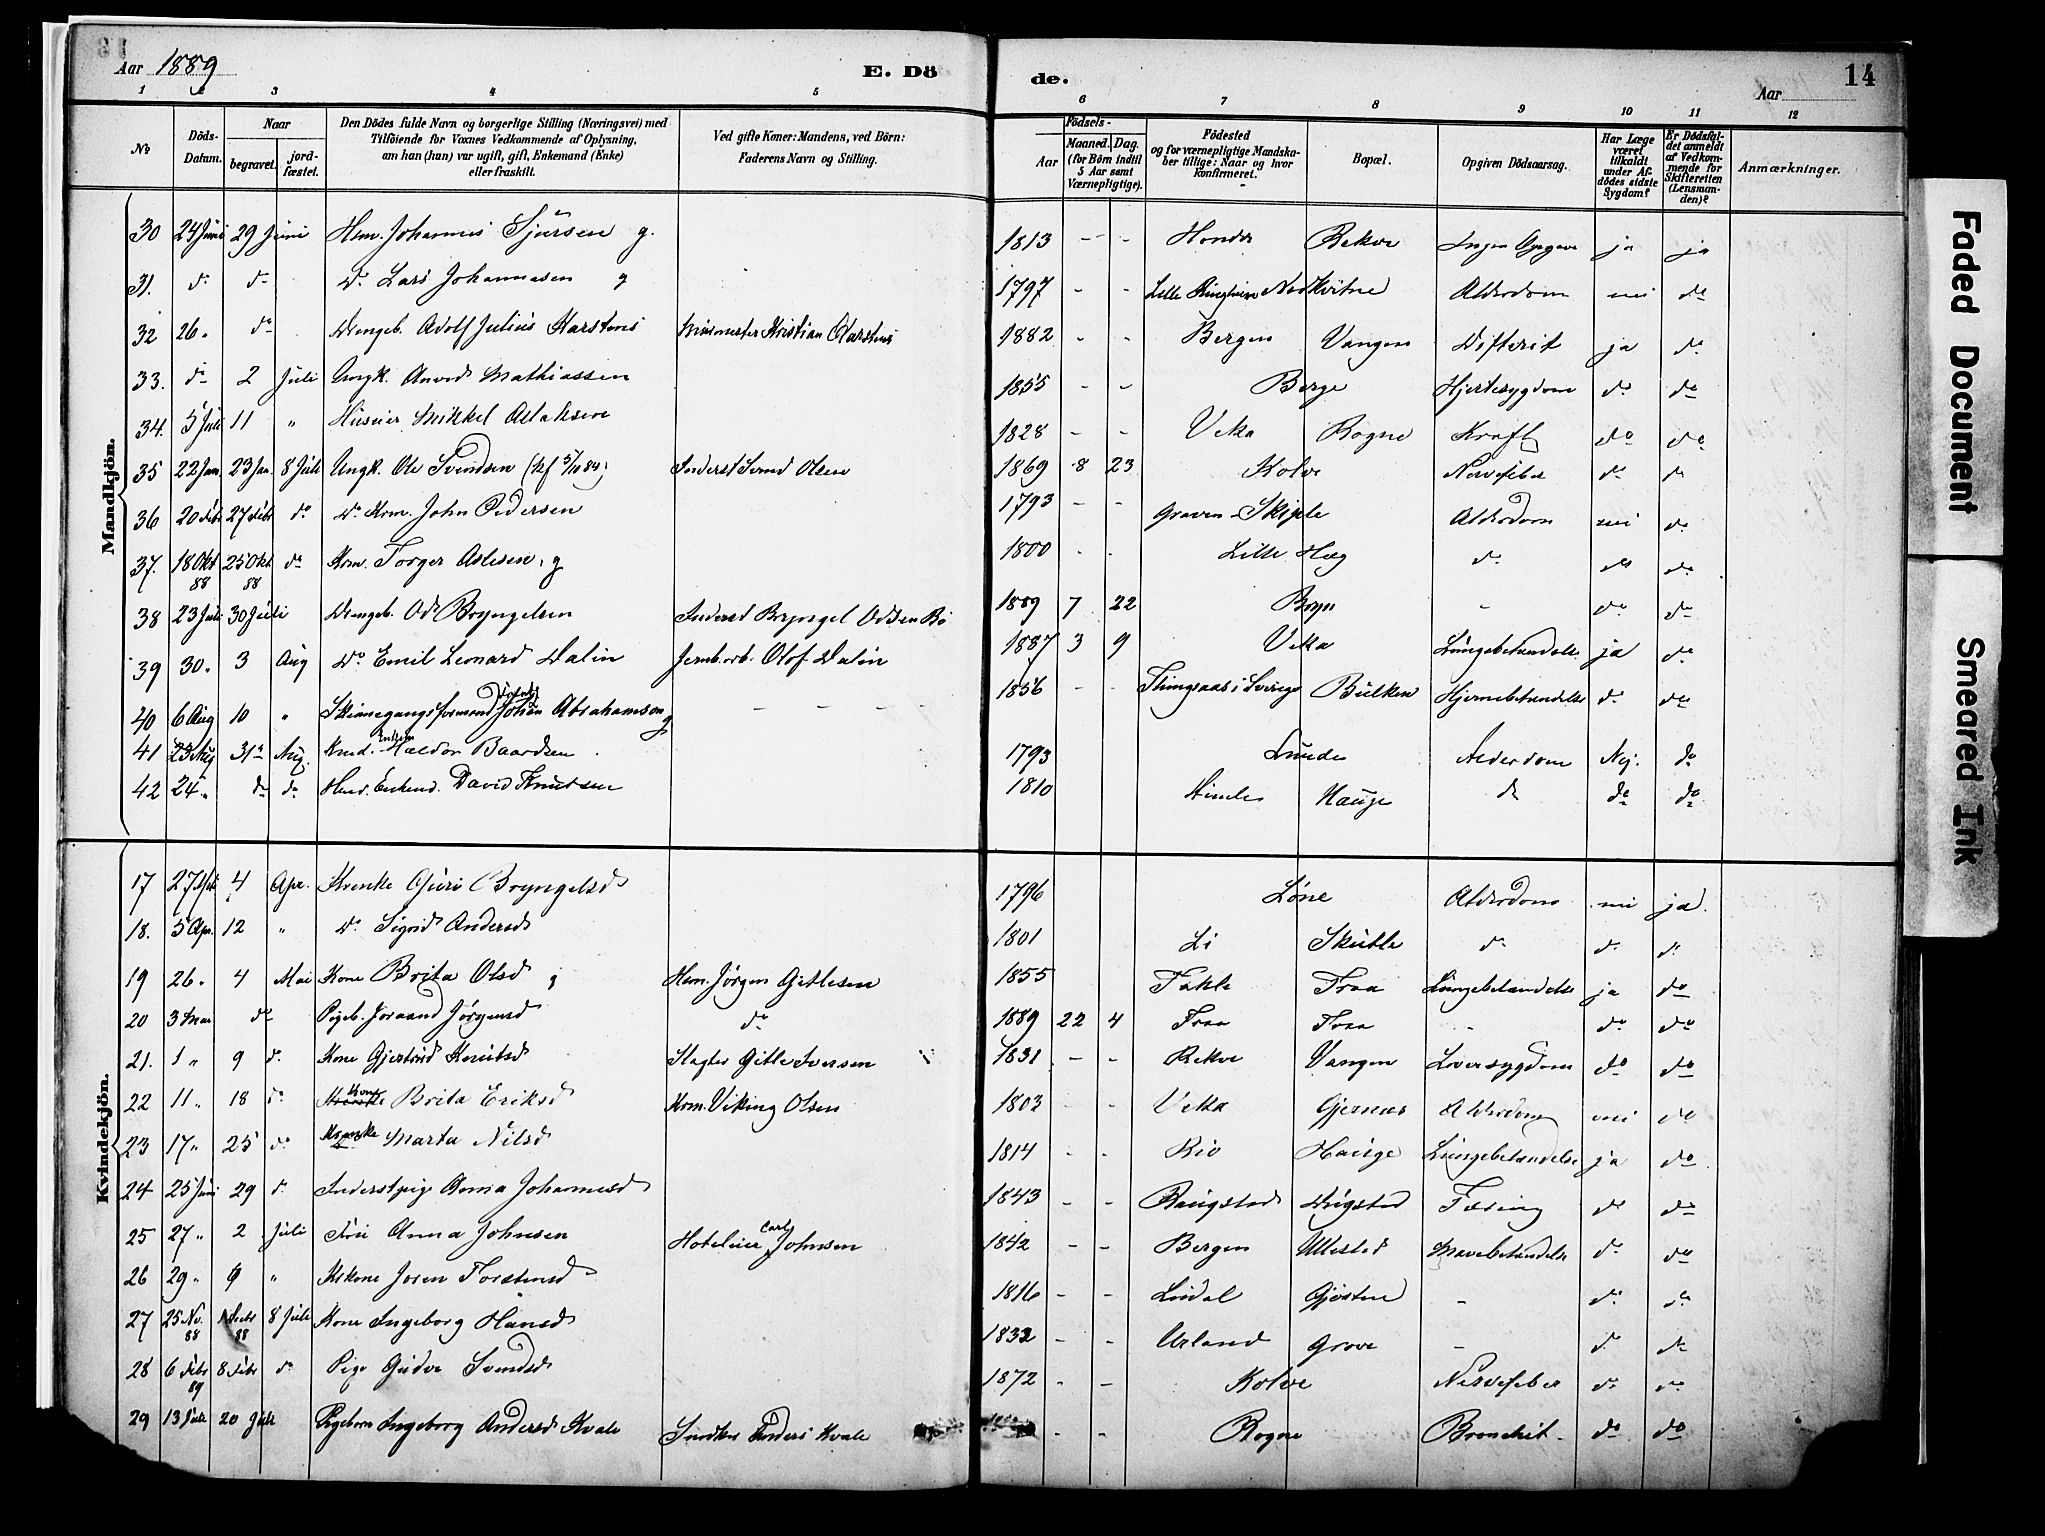 Aar 1889
E. Dö
de.
Aar
14
1 2 3 4 5 6 7 8 9 10 11 12
No
Döds-Datum.
Naar
begravet.
jord-fæstet.
Den Dödes fulde Navn og borgerlige Stilling (Næringsvei) med
Tilföiende for Voxnes Vedkommende af Oplysning,
om han (hun) var ugift, gift, Enkemand (Enke)
eller fraskilt.
Ved gifte Koner: Mandens, ved Börn:
Faderens Navn og Stilling.
Födsels-
Aar
Maaned. Dag.
(for Börn indtil
5 Aar samt
Værnepligtige).
Födested
og for værnepligtige Mandska-
ber tillige: Naar og hvor
konfirmeret.
Bopæl.
Opgiven Dödsaarsag.
Har Læge
været
tilkaldt
under Af-
dödes sidste
Sygdom?
Er Dödsfal-
det anmeldt
af Vedkom-
mende for
Skifteretten
(Lensman-
den)?
Anmærkninger.
Mandkjön.
30 24 Juni 29 Juni Hsm. Johannes Sjursen g. 1813 - - Rekve Ingen ja ja
31. do do do Lars Johannesen g 1797 - - Lille Nedkvitne Alderdom nei do
32 26 " do Drengeb. Adolf Julius Karstens Kristian 1882 - - Bergen Vangen Difterit ja do
33. do 2 Juli Ungk. Mathiassen 1855 - - Berge Hjertesygdom do do
34. 5 Juli 11 " Mikkel Aslaksen 1828 - - Veka Rogne Kræft do do
35 22 Jan. 23 Jan. 8 Juli Ungk. Ole Svendsen (kf 5/10 84) Inderst Svend Olsen 1869 8 23 Kolve Nervefeber do do
36 20 Febr 27 Febr do do Krm. John Pedersen 1793 - - Graven - Skiple Alderdom nei do
37. 18 Okt 88 25 Okt 88 do Krm. Torger Aslesen g 1800 - - Lille Hæg do do do
38 23 Juli 30 Juli Drengeb. Od Bryngelsen Inderst Bryngel Odsen Bö 1889 7 22 - do do
39 30. 3 Aug do Emil Leonard Dalin Jernb.arb. Olof Dalin 1887 3 9 Veka Lungebetændelse ja do
40 6 Aug 10 " Skinnegangsformand Johan Abrahamson g - - - - 1856 - - i Sverige Bulken Hjernebetændelse do do
41 23 Aug 31te Aug. Enkem Haldor Baardsen 1793 Lunde Alderdom Nej. do
42 24 " do do David Knutsen 1810 Himle Hauge do do do
Kvindekjön.
17 27 4 Apr. Kvenke Guri Bryngelsd 1796 Löne Alderdom nei ja
18. 5 Apr. 12 " do Sigrid Andersd 1801 Li Skutle do do do
19 26 " 4 Mai Kone Brita Olsd g Hsm. Jörgen Gitlesen 1855 Fraa Lungebetændelse ja do
20 3 Mai do Pigeb. Joraand Jörgensd do 1889 22 4 Fraa Fraa - do do
21. 1 " 9 do Kone Gjertrud Knutsd Slagter Gitle Iversen 1831 - - Rekve Vangen Leversygdom do do
22 11 " 18 do Kone Brita Eriksd Krm. Viking Olsen 1803 - - Veka Gjernes Alderdom nei do
23 17 " 25 do Marta Nilsd 1814 - - Hauge Lungebetændelse ja do
24 25 Juni 29 do Inderstpige Anna Johannesd 1843 - - Tæring do do
25 27 " 2 Juli Fru Anna Johnsen Hotelier Carl Johnsen 1842 - - Bergen Ullestad Mavebetændelse do do
26 29 " 6 " Torstensd 1816 - - Lindal - do do
27 25 Nv. 88 88 8 Juli Kone Ingeborg Hansd 1832 - - Urland Grove - do do
28 6 Febr 89 8 Febr do Pige Gudve Svendsd 1872 - - Kolve Nervefeber do do
29 13 Juli 20 Juli Pigebarn Ingeborg Andersd Kvale Anders Kvale - - Rogne Bronchit do do
Faded Document
Smeared Ink